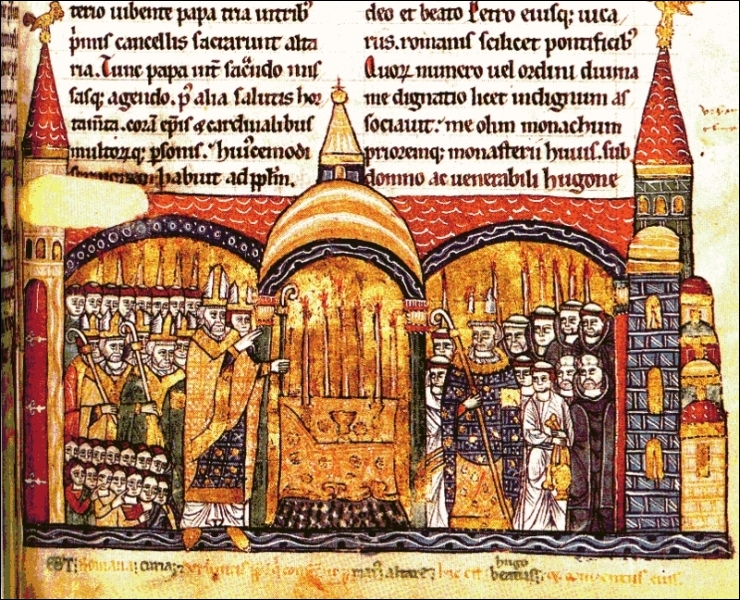 terio iubente papa tria in tribꝰ
p̄mis cancellis sacrarunt alta
ria. Tunc papa int̄ sac̄ndo mis
sasq; agendo. p̄ alia salutis hor
tam̄ta. corā ep̄is & cardinalibus
multorq; p̄sonis. huicemodi
habuit ad pp̄lm.
deo et beato Petro eiusq; uica
riis. romanis scilicet pontificibꝰ
Quoꝝ numero uel ordini diuina
me dignatio licet indignum as
sociauit. me olim monachum
prioremq; monasterii huius. sub
domno ac uenerabili hugone
romana curia altare hic est hugo